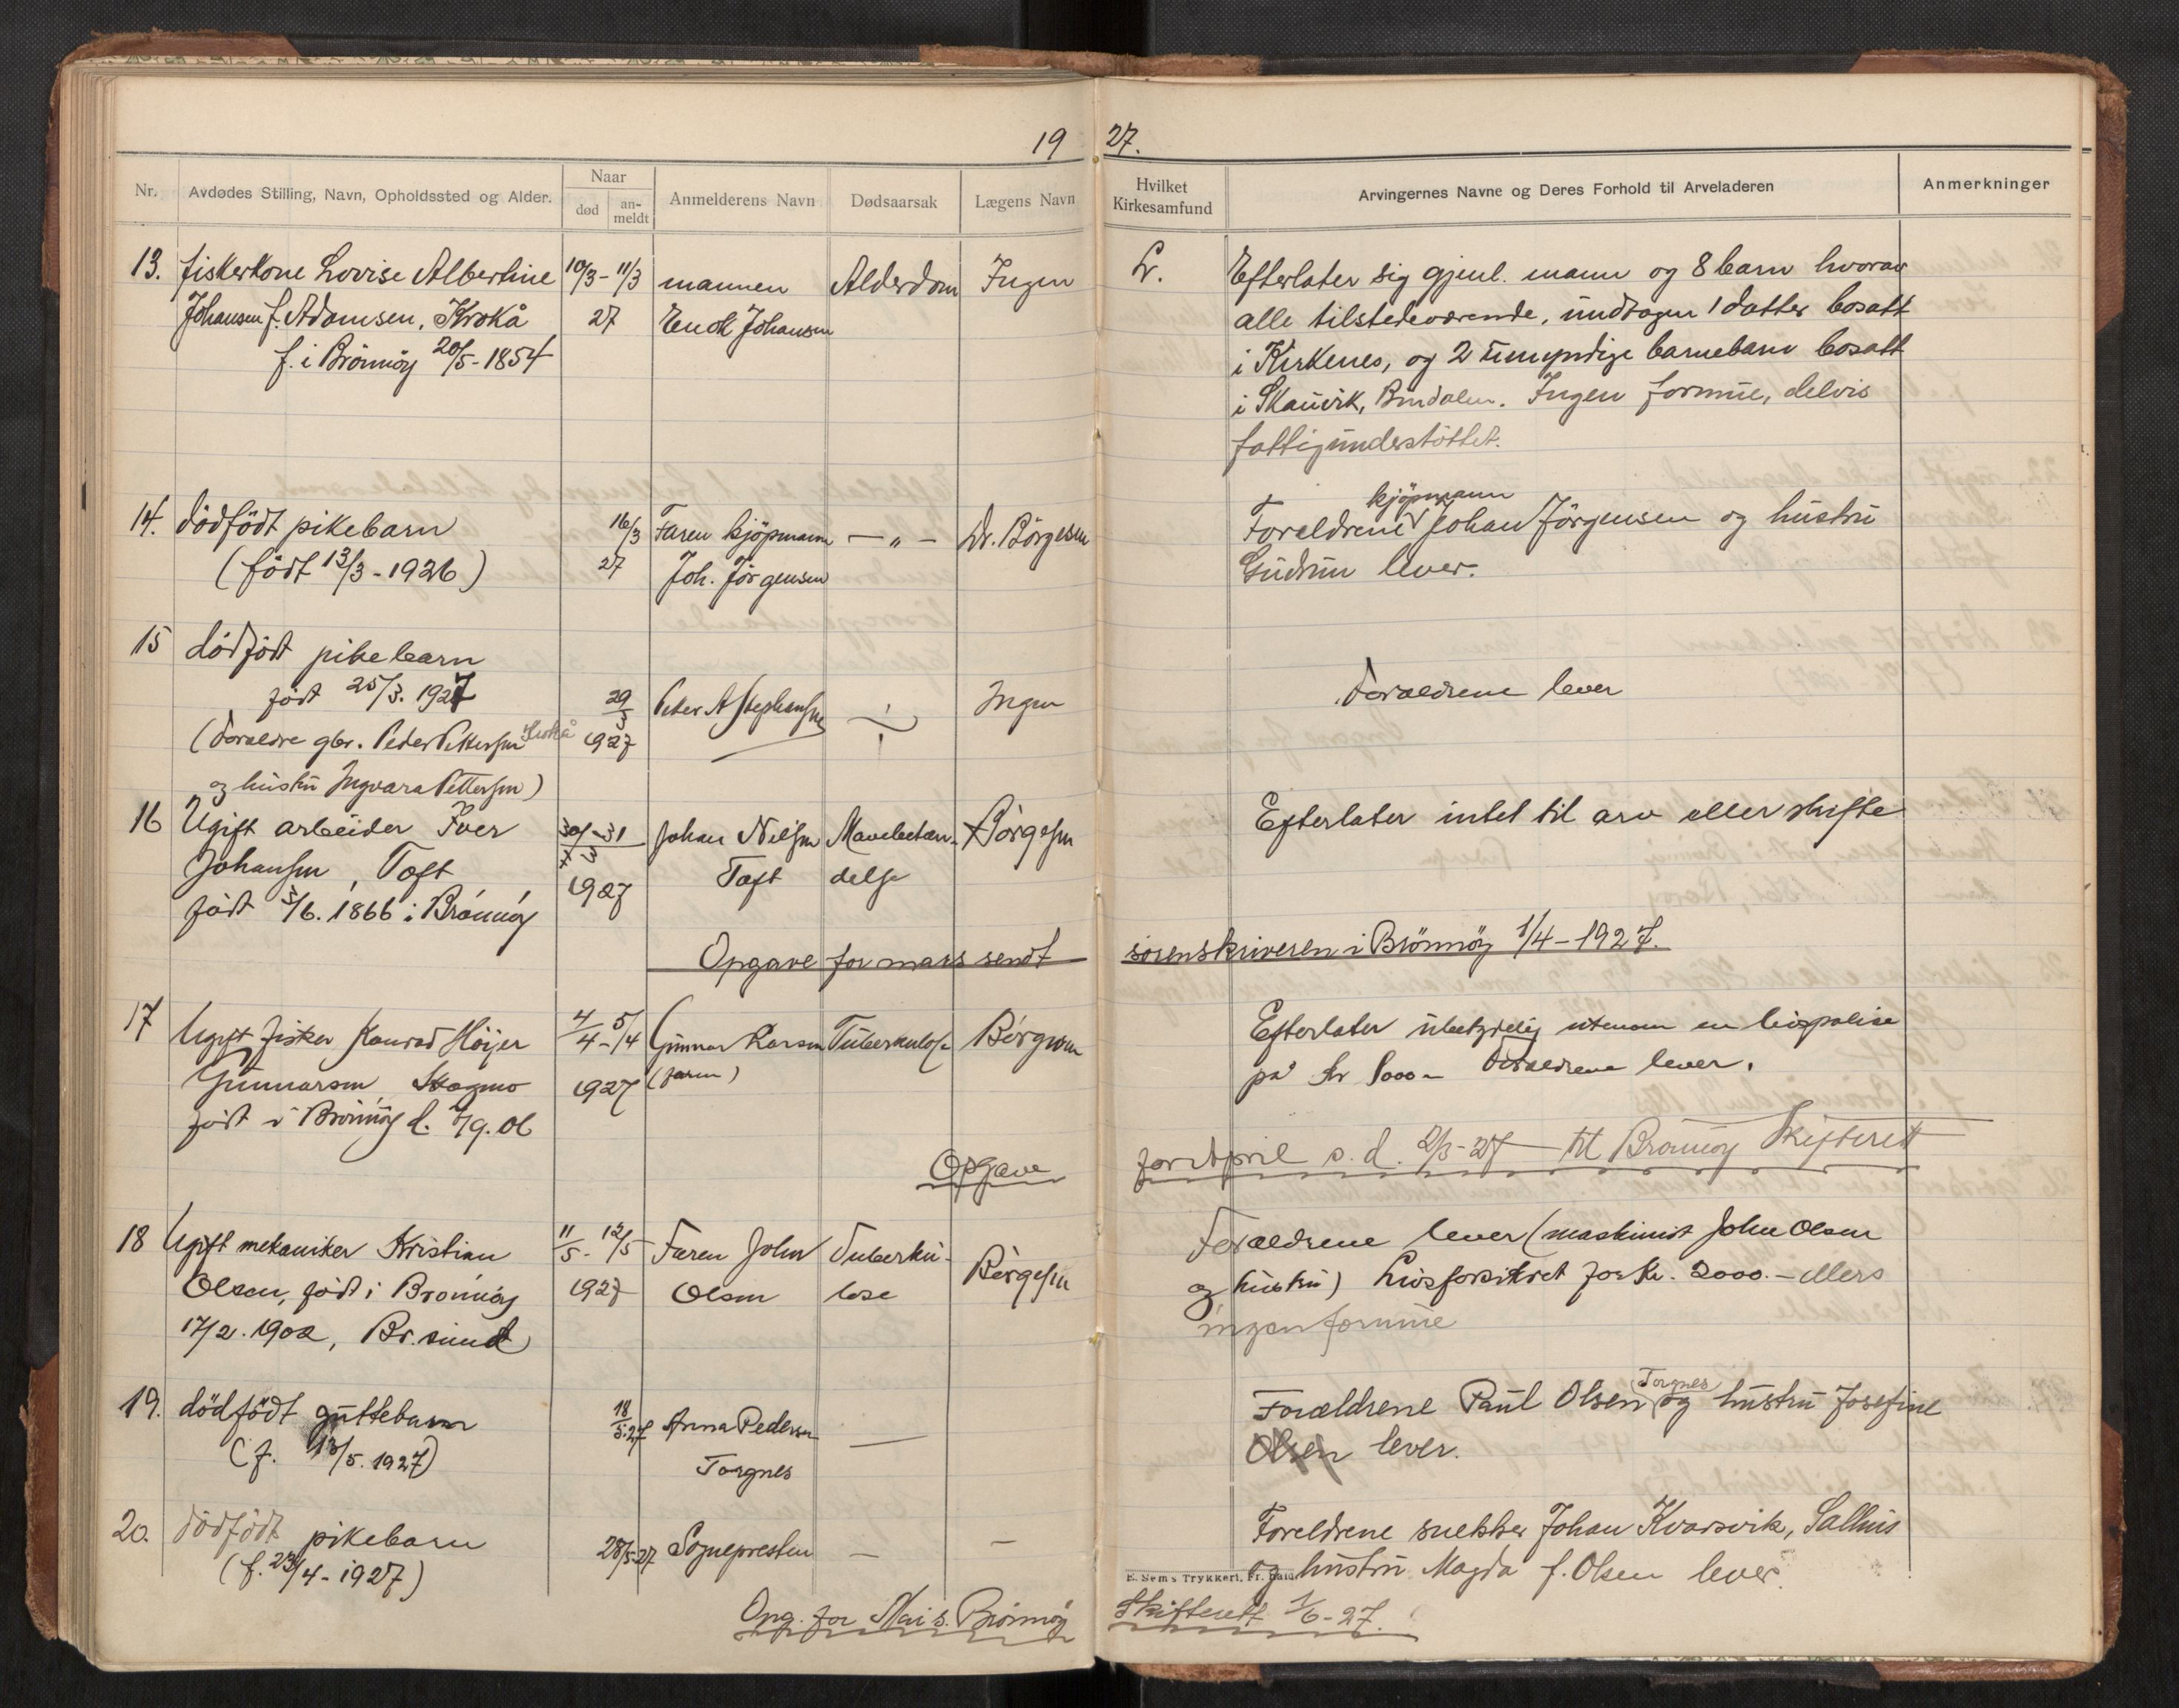 19 27.
Nr. Avdødes Stilling, Navn, Opholdssted og Alder. Naar død an-meldt Anmelderens Navn Dødsaarsak Lægens Navn Hvilket Kirkesamfund Arvingernes Navne og Deres Forhold til Arveladeren Anmerkninger
13. fiskerkone Lovise Albertine 10/3 - 11/3 mannen Alderdom Ingen
Johansen f. Adamsen, Krokå 27 Enok Johansen
f. i Brönnöy 20/5 - 1854
14. dödfödt pikebarn 16/3 Faren kjöpmann — " — Dr. Börgesen
(födt 13/3 - 1926) 27 Joh. Jörgensen
15 dödfödt pikebarn
födt 25/3. 1927 29/3 Peter A Stephansen Ingen
(Foraeldre gbr. Peder Pettersen Krokå 1927
og hustru Ingvara Pettersen)
16 Ugift arbeider Iver 30/3 - 31/3 Johan Nilsen Mavebetæn- Börgesen
Johansen, Toft 1927 Toft delse
födt 5/6. 1866 i Brönnöy
Opgave for mars sendt
17 Ugift fisker Konrad Höijer 4/4 - 5/4 Gunnar Larsen Tuberkulose Börgesen
Gunnarsen, Skogmo 1927 (faren)
födt i Brönnöy d. /9. 06
Opgave
18 Ugift mekaniker Kristian 11/5 - 12/5 Faren John Tuberku-
Olsen, födt i Brönnöy 1927 Olsen lose Börgesen
17/2. 1902, Br.sund
19. dödfödt guttebarn 18/5.27 Anna Pedersen —
(f. 13/5. 1927) Torgnes
20. dödfödt pikebarn 28/5-27 Sognepresten — —
(f. 23/4 - 1927)
Opg. for Mai s. Brönnöy
Lr. Efterlater sig gjenl. mann og 8 barn hvorav
alle tilstedeværende, undtagen 1 datter bosatt
i Kirkenes, og 2 umyndige barnebarn bosatt
i Skauvik, Bindalen. Ingen formue, delvis
fattigunderstöttet.
kjöpmann
Foreldrene Johan Jörgensen og hustru
Gudrun lever.
Foraeldrene lever
Efterlater intet til arv eller skifte
sorenskriveren i Brönnöy 1/4 - 1927.
Efterlater ubetydelig utenom en livspolise
på kr 1000 - Foraeldrene lever.
for April s. d. 2/5 - 27 til Brönnöy Skifterett
Foraeldrene lever (maskinist John Olsen
og hustru) Livsforsikret for kr. 2000. - ellers
ingen formue
Torgnes
Forældrene Paul Olsen og hustru Josefine
Olsen lever.
Foreldrene snekker Johan Kvarsvik, Salhus
og hustru Magda f. Olsen lever.
E. Sems Trykkeri, Fr. hald.
Skifterett 1/6 - 27.